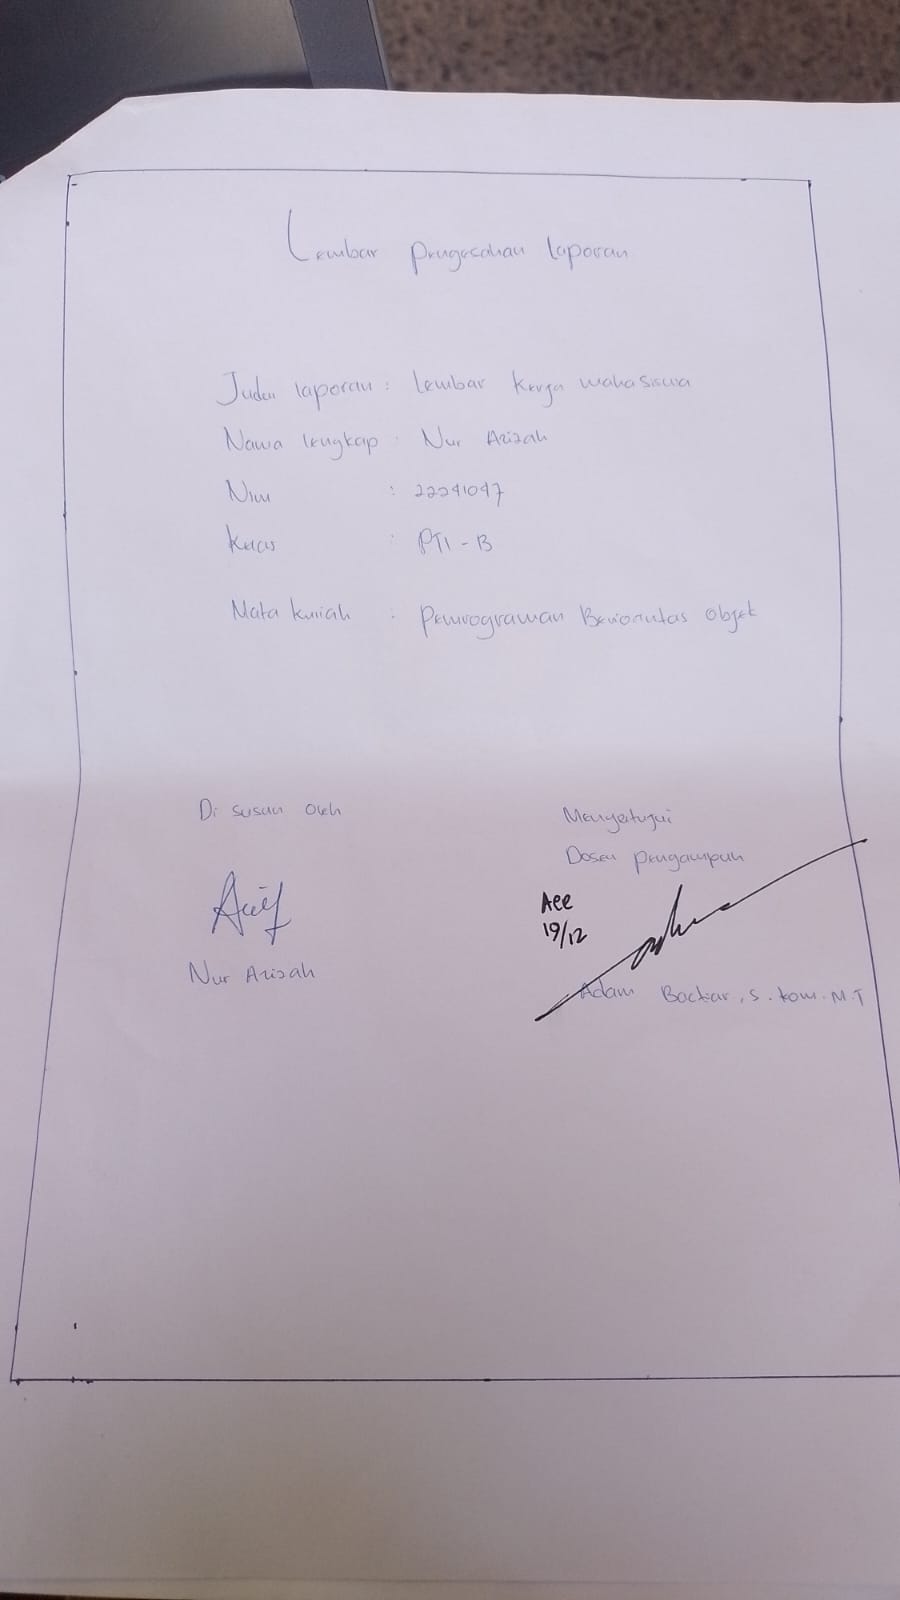 Lembar pengesahan laporan
Judul laporan : Lembar Kerja mahasiswa
Nama lengkap : Nur Azizah
Nim : 22241047
Kelas : PTI - B
Mata kuliah : Pemrograman Berorientas Objek
Di susun oleh
Menyetujui
Dosen pengampuh
Acc
19/12
Nur Azizah
Adam Bachtiar, S. kom. M.T